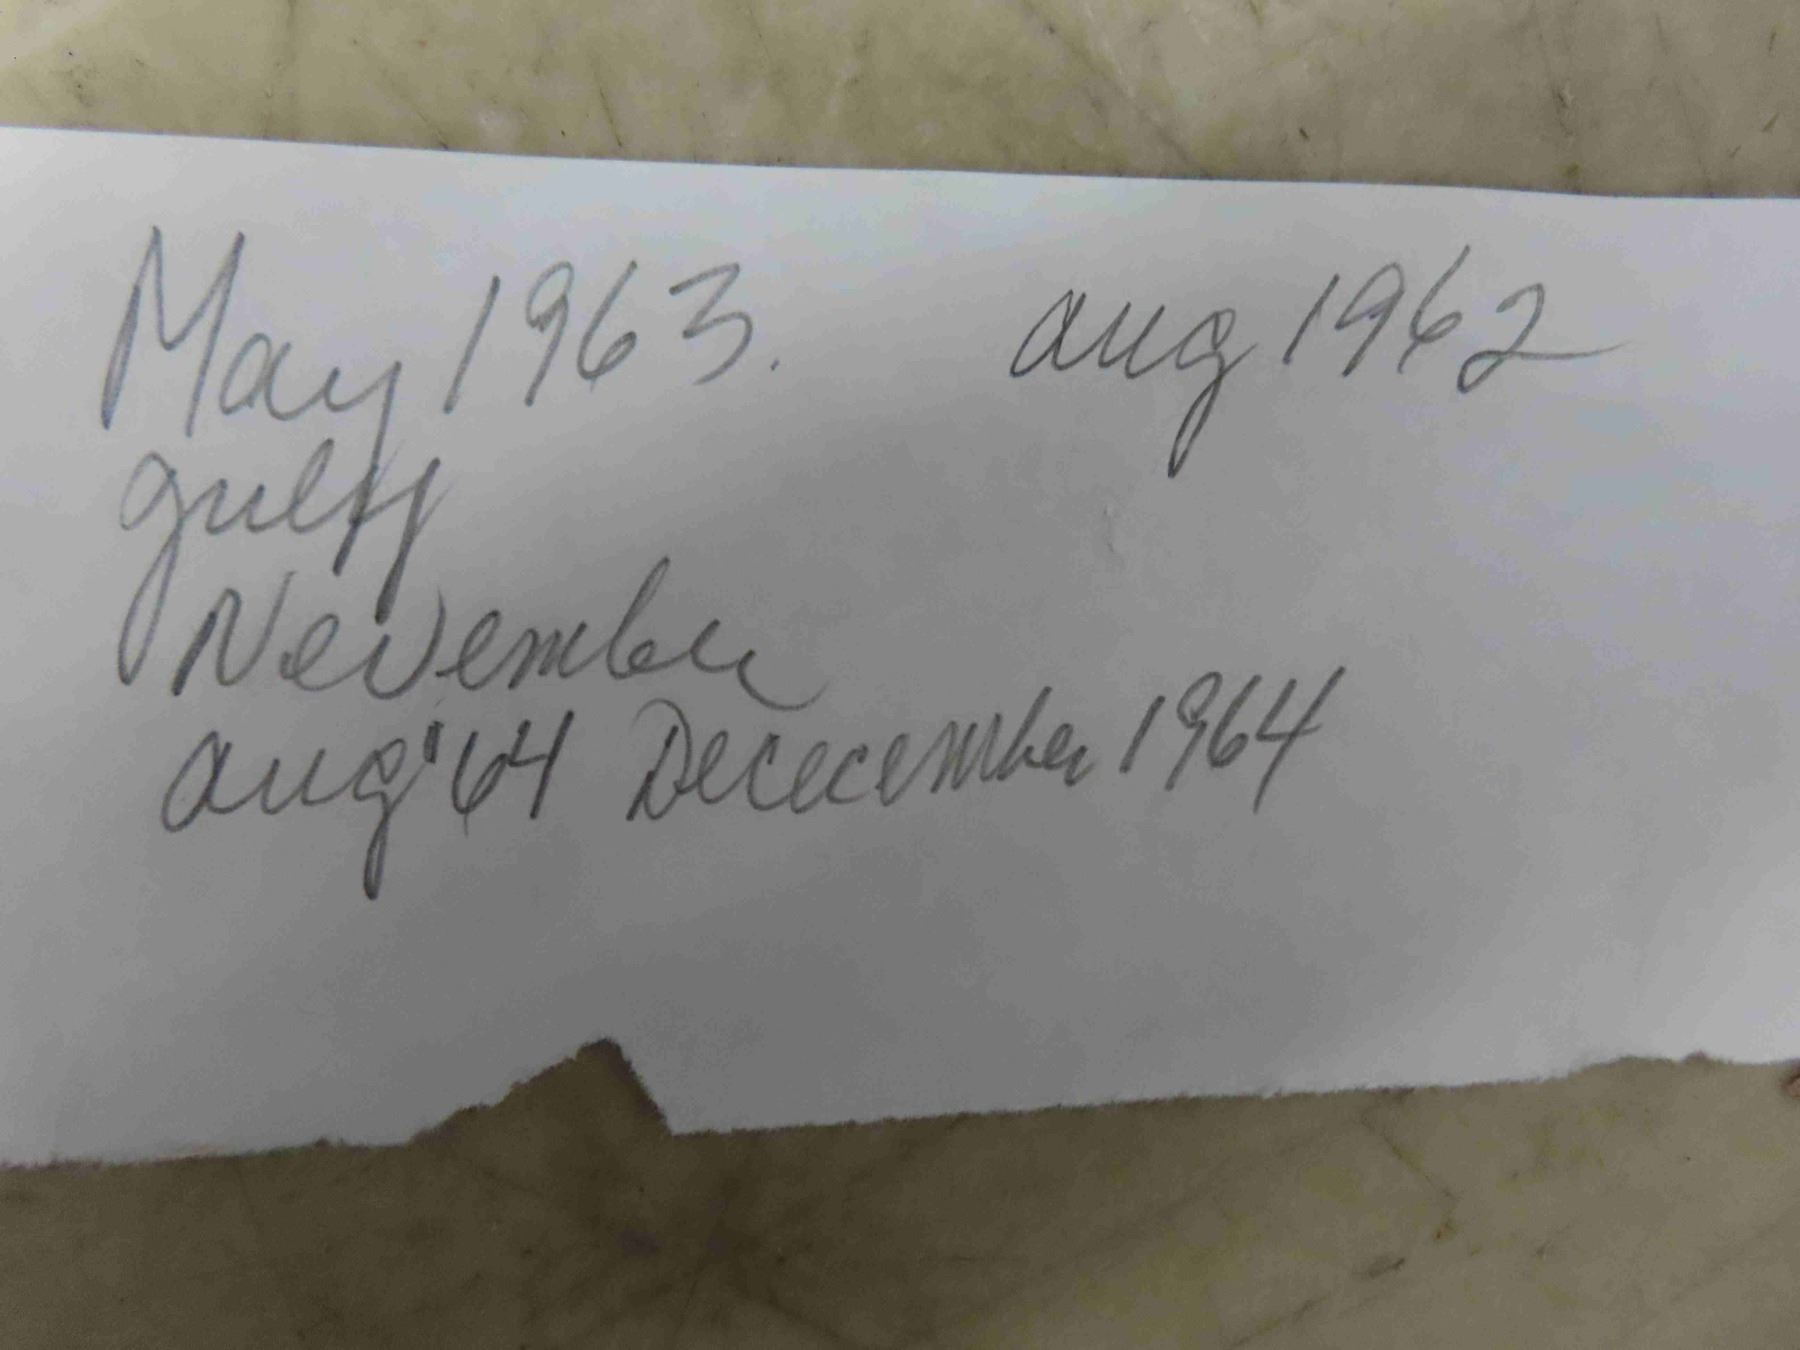 May 1963. aug 1962
November
aug '64 Dececember 1964